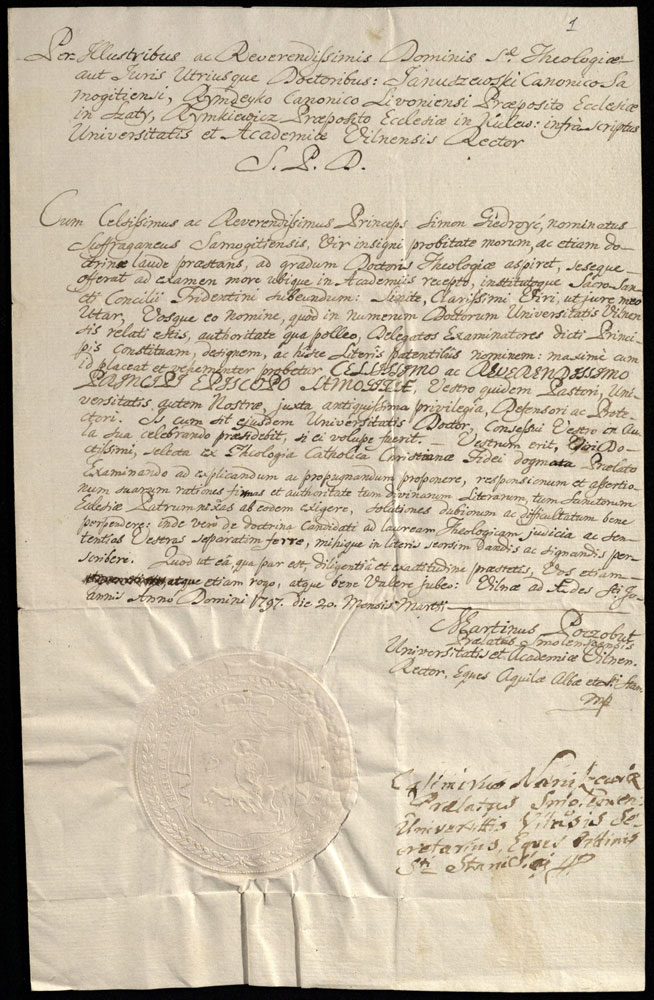 1
Per Illustribus ac Reverendissimis Dominis S. Theologiæ
aut Juris Utriusque Doctoribus: Janudzewoski Canonico Sa
mogitiensi, Rymdeyko Canonico Livoniensi Præposito Ecclesiæ
in Szaty, Rymkiewicz Præposito Ecclesiæ in infra scriptus
Universitatis et Academiæ Vilnensis Rector
S. P. D.
Cum Celsissimus ac Reverendissimus Princeps Simon Giedroyć, nominatus
Suffraganeus Samogitiensis, Vir insigni probitate morum, ac etiam do
trinæ laude præstans, ad gradum Doctoris Theologiæ aspiret, seseque
offerat ad examen more ubique in Academiis recepto, institutoque Sacro-San
cti Concilii Tridentini subeundum: Sinite, Clarissimi Viri, ut jure meo
Utar, Vosque eo nomine, quod in numerum Doctorum Universitatis Vilnen
sis relati estis, authoritate qua polleo, Delegatos Examinatores dicti Princi-
pis Constituam, designem, ac hisce Literis patentibus nominem: maxime cum
id placeat et vehementer probetur CELSISSIMO ac REVERENDISSIMO
PRINCIPI EPISCOPO SAMOGITIÆ, Vestro quidem Pastori, Uni
versitatis autem Nostræ, juxta antiquissima privilegia, Defensori ac Prote
ctori. Is cum sit ejusdem Universitatis Doctor, Consessui Vestro in Au
la Sua celebrando præsidebit, si ei volupe fuerit. — Vestrum erit, Viri Do
ctissimi, selecta ex Theologia Catholica Christianæ Fidei dogmata Prælato
Examinando ad explicandum ac propugnandum proponere, responsionum et assertio
num suarum rationes firmas et authoritate tum divinarum Literarum, tum Sanctorum
Eclesiæ Patrum nixas ab eodem exigere, solutiones dubiorum ac difficultatum bene
perpendere: inde vero de doctrina Candidati ad lauream Theologicam judicia ac Sen
tentias Vestras separatim ferre, mihique in literis seorsim dandis ac signandis per
scribere. Quod ut ea, qua par est, diligentia et exactitudine præstetis, Vos etiam
atque etiam rogo, atque bene Valere jubeo: Vilnæ ad Ædes Sti Jo
annis Anno Domini 1797. die 20. Mensis Martii
Martinus Poczobut
Prælatus Smolenscensis
Universitatis et Academiæ Vilnen.
Rector. Eques Aquilæ Albæ et Sti Stan
mp
Casimirus
Prælatus Smolenscen:
Universittis Vilnsis Se
cretarius, Eques Ordinis
Sti Stanislai